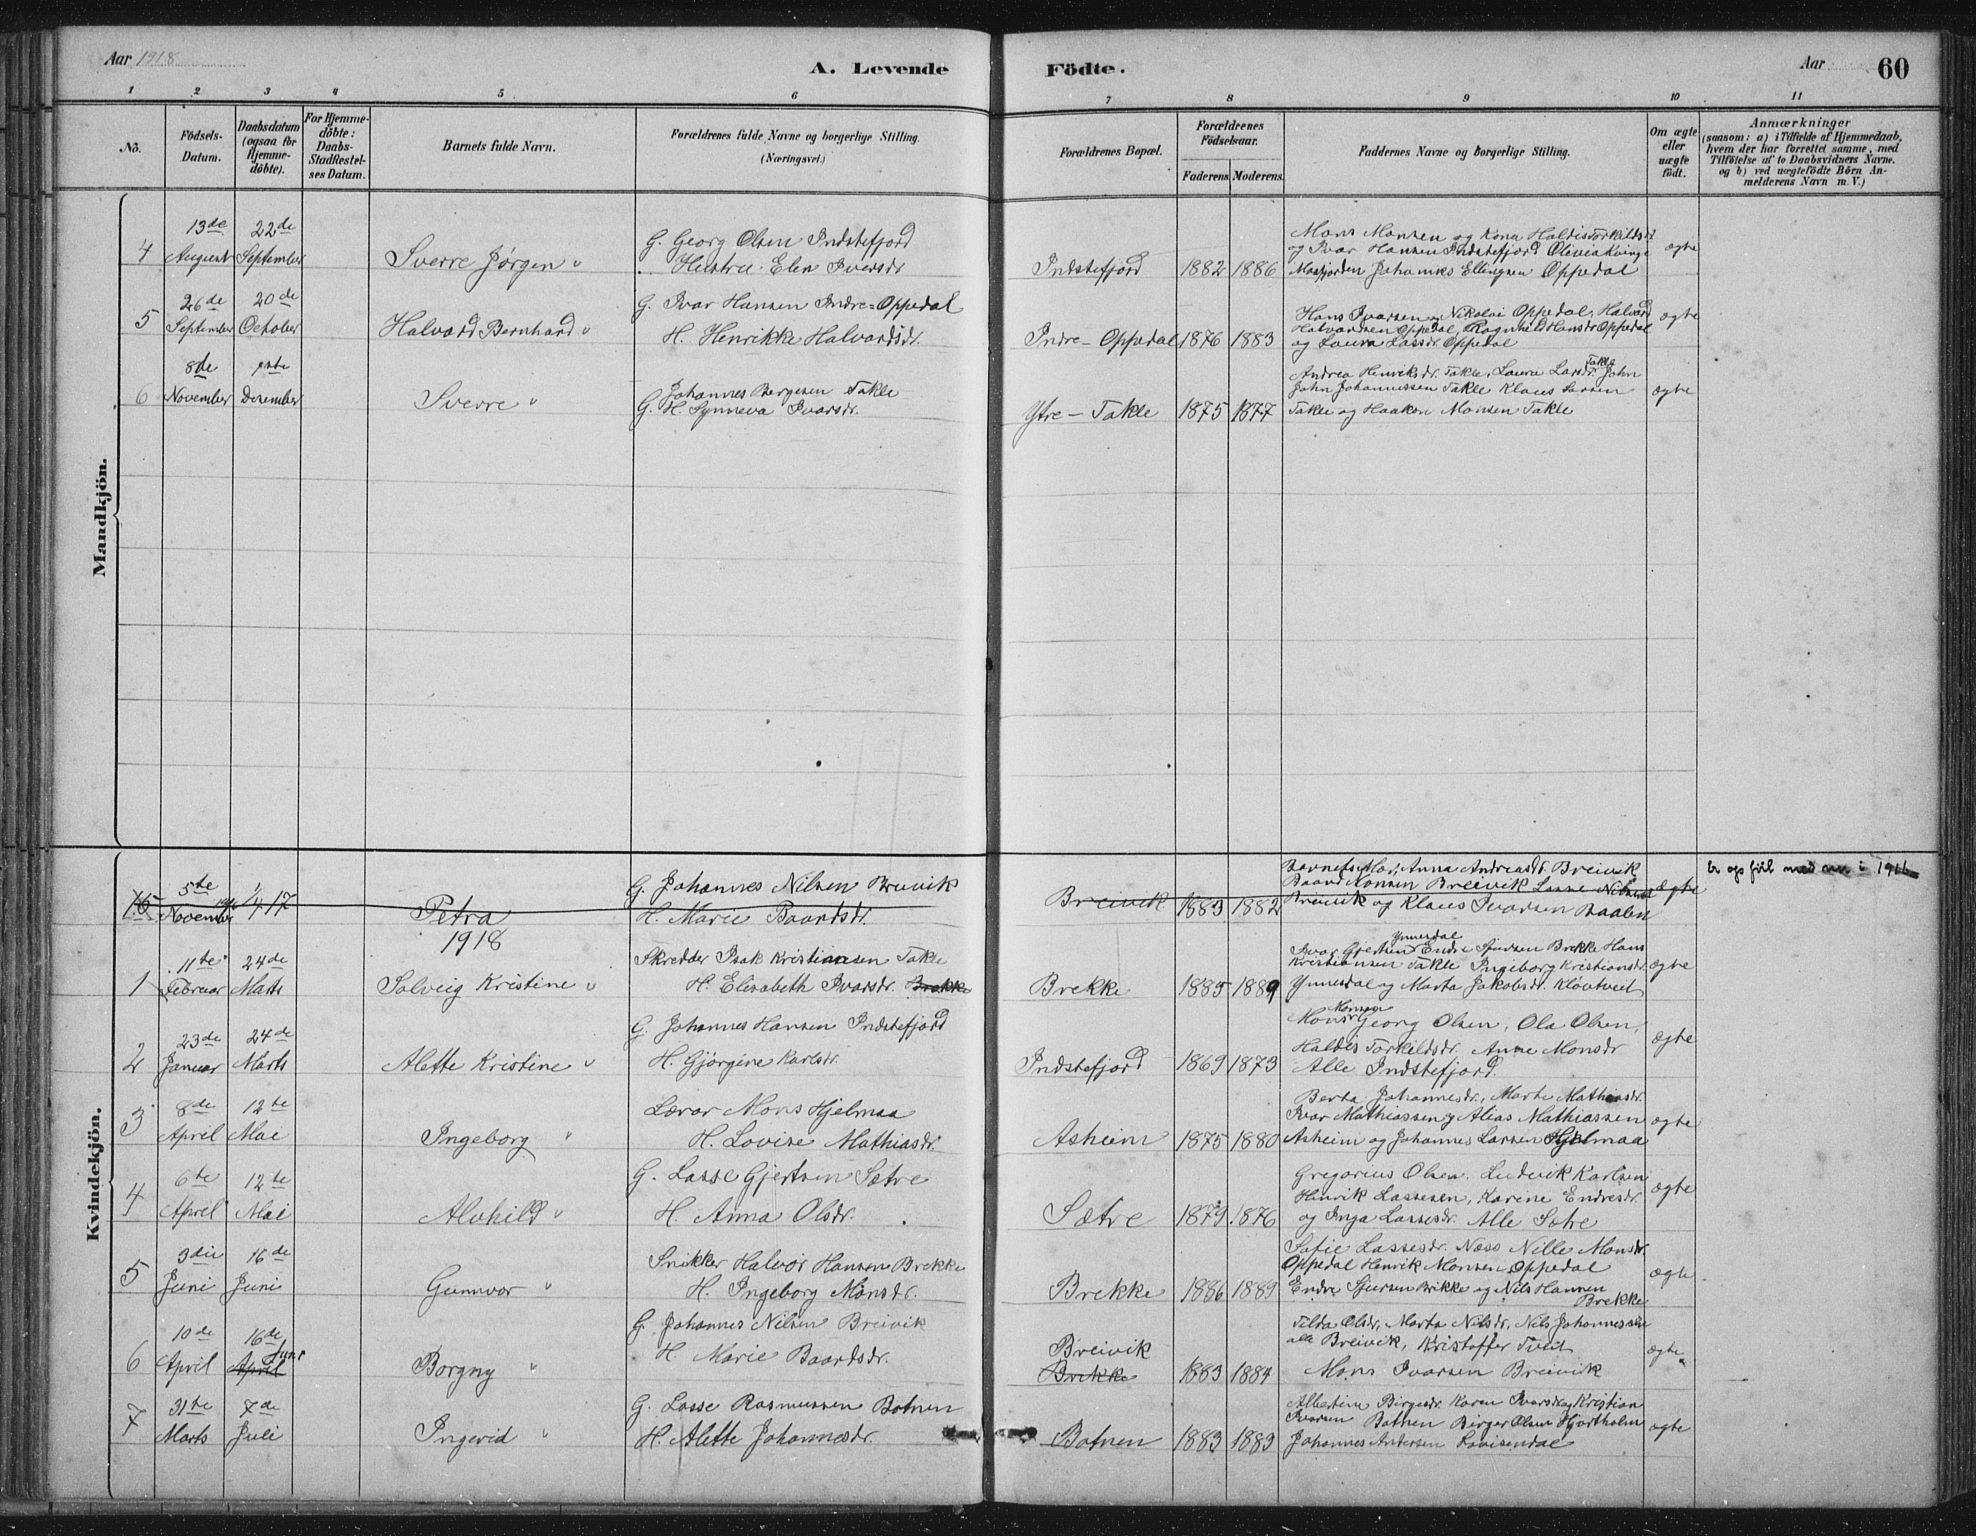 Aar 1918
A. Levende Födte.
Aar
60
1 2 3 4 5 6 7 8 9 10 11
No.
Födsels-Datum.
Daabsdatum (ogsaa for Hjemme-döbte).
For Hjemme-döbte: Daabs-Stadfæstel-ses Datum.
Barnets fulde Navn.
Forældrenes fulde Navne og borgerlige Stilling.
(Næringsvei.)
Forældrenes Bopæl.
Forældrenes Födselsaar.
Faderens. Moderens.
Faddernes Navne og borgerlige Stilling.
Om ægte eller uægte födt.
Anmærkninger
(saasom: a) i Tilfælde af Hjemmedaab, hvem der har forrettet samme, med Tilföielse af to Daabsvidners Navne. og b) ved uægtefödte Börn An-melderens Navn m. V.)
Mandkjön.
4 13de August 22de September
Sverre Jørgen "
G. Georg Olsen Indstefjord
Hustru. Elen Iversdr
Indstefjord 1882 1886
Mons Monsen og Kona Haldis Torkildsdr
og Ivar Hansen Indstefjord Olivia Kvinge
Masfjorden Johannes Ellingsen Oppedal
ægte
5 26de September 20de October
Halvard Bernhard "
G. Ivar Hansen Indre-Oppedal
H. Henrikke Halvardsdr.
Indre-Oppedal 1876 1883
Hans Ivarsen og Nikolai Oppedal, Halvard
Halvardsen Oppedal, Ragnhild Hansdr Oppedal
og Laura Lassdr. Oppedal
ægte
6 8de November Desember
Sverre "
Johannes Børgesen Takle
G. H. Synneva Ivarsdr.
Ytre-Takle 1875 1877
Andrea Henriksdr. Takle, Laura Larsdr. Takle John
John Johannessen Takle Klaus Larsen
Takle og Haakon Monsen Takle
ægte
Kvindekjön.
15 5te November 1/4 17
Petra
G. Johannes Nilsen Breivik
H. Marie Baardsdr.
Breivik 1883 1882
Barnets Mor, Anna Andreasdr Breivik
Baard Monsen Breivik Lasse Nilsen
Breivik og Klaus Ivarsen Baalen
ægte
er og føil med an i 1916
1918
1 11te Februar 24de Marts
Solveig Kristine "
Skredder Isak Kristiansen Takle
H. Elisabeth Ivarsdr. Brekke
Brekke 1885 1889
Ivar Gjertsen Ynnesdal Endre Sjursen Brekke Hans
Kristiansen Takle Ingeborg Kristiansdr.
Ynnesdal og Marta Jakobsdr. Kløvtveit
ægte
2 23de Januar 24de Marts
Alette Kristine "
G. Johannes Hansen Indstefjord
H. Gjørgine Karlsdr.
Indstefjord 1869 1873
Mons Monsen Georg Olsen, Ola Olsen,
Haldis Torkildsdr. Anne Monsdr
Alle Indstefjord.
ægte
3 8de April 12te Mai
Ingeborg "
Lærar Mons Hjelmaa
H. Lovise Mathiasdr.
Asheim 1875 1880
Berta Johannesdr., Marte Mathiasdr.
Ivar Mathiassen og Alias Mathiassen
Asheim og Johannes Larsen Hjelmaa
ægte
4 6te April 12te Mai
Alvhild "
G. Lasse Gjertsen Sætre
H. Anna Olsdr.
Sætre 1879 1876
Gregorius Olsen. Ludvik Karlsen
Henrik Lassesen, Karine Endresdr.
og Inga Lassesdr. Alle Sætre
ægte
5 3die Juni 16de Juni
Gunnvor "
Snikker Halvor Hansen Brekke
H. Ingeborg Monsdr.
Brekke 1886 1889
Sofie Lassesdr. Næss Nille Monsdr.
Oppedal Henrik Monsen Oppedal
Endre Sjursen Brekke og Nils Hansen
Brekke
ægte
6 10de April 16de April Juni
Borgny "
G. Johannes Nilsen Breivik
H Marie Baardsdr.
Breivik
Brekke 1883 1884
Tilda Olsdr, Marta Nilsdr, Nils Johannessen
alle Breivik, Kristoffer Tveit
Mons Ivarsen Breivik
ægte
7 31te Marts 7de Juli
Ingerid "
G. Lasse Rasmussen Botnen
H. Alette Johannesdr.
Botnen 1883 1883
Albertine Birgesdr. Karen Ivarsdr og Kristian
Ivarsen Botnen Birger Olsen Hjortholm
Johannes Andersen Lovisendal
ægte